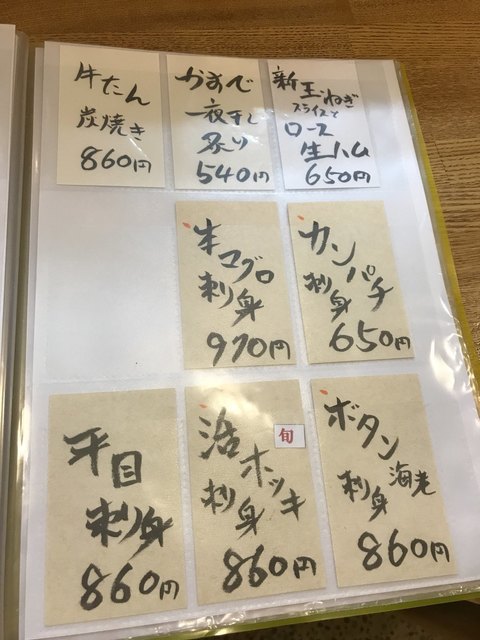 牛たん
炭焼き
860円
かすべ
一夜干し
炙り
540円
新玉ねぎ
スライスと
ロース
生ハム
650円
生マグロ
刺身
970円
カンパチ
刺身
650円
平目
刺身
860円
旬
活ホッキ
刺身
860円
ボタン
海老
刺身
860円